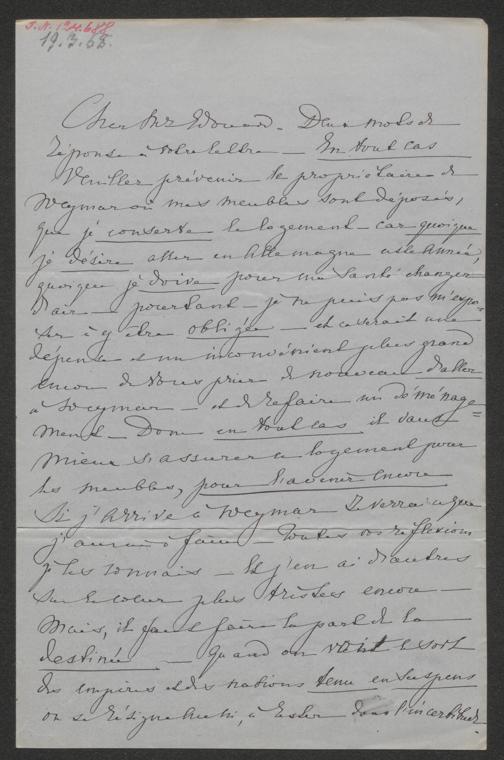 I.N. 124.688
19.3.68.
Cher Mr Edouard. Deux mots de
réponse à votre lettre — En tout cas
Veuillez prévenir le propriétaire de
Weymar où mes meubles sont déposés,
que je conserve le logement — car quoique
je désire aller en Allemagne cette année,
quoique je doive pour ma santé changer
d'air — pourtant — je ne puis pas m'expo-
ser à y être obligée — et ce serait une
dépense et un inconvénient plus grand
encore de vous prier de nouveau d'aller
à Weymar — et de refaire un déménage=
ment — Donc en tout cas il vaut
mieux s'assurer ce logement pour
les meubles, pour l'avenir encore
Si j'arrive à Weymar je verrai ce que
j'aurai à faire — Toutes vos réflexions
je les connais — Et j'en ai d'autres
sur le cœur plus tristes encore —
Mais, il faut faire la part de la
destinée — Quand on voit le sort
des empires et des nations tenu en suspens
on se résigne aussi, à rester dans l'incertitude